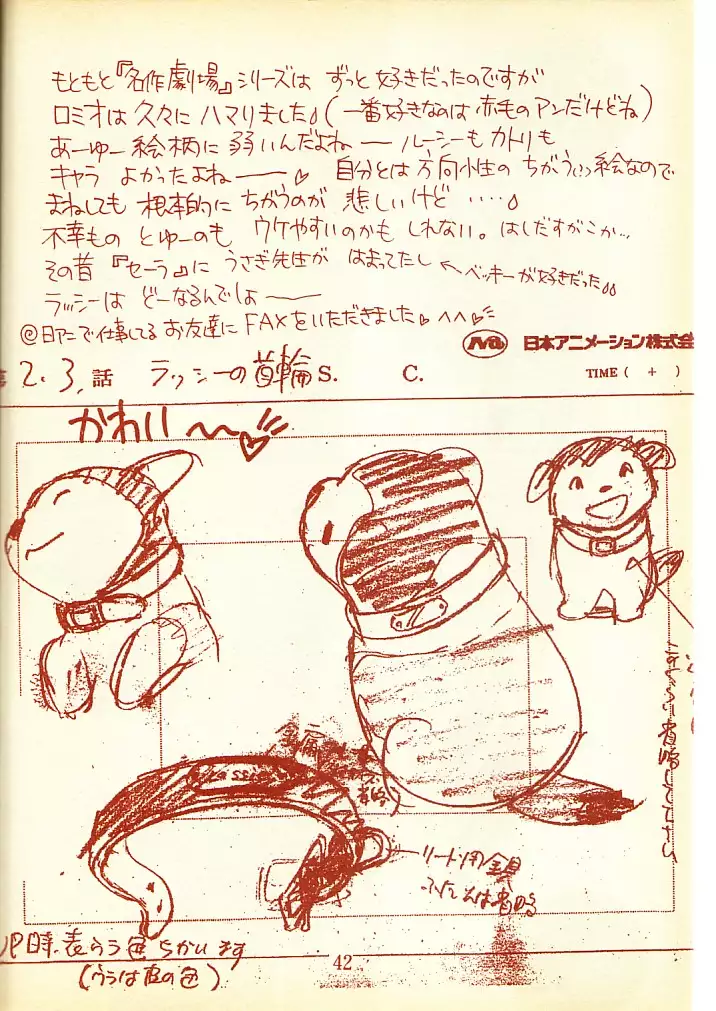 もともと『名作劇場』シリーズは ずっと好きだったのですが
ロミオは久々に ハマりました。(一番好きなのは赤毛のアンだけどね)
あーゆー絵柄に 弱いんだよねー ルーシーもカトリも
キャラ よかったよねー♡ 自分とは方向性のちがうぃぃ絵なので
まねしても 根本的に ちがうのが 悲しいけど ‥‥。
不幸もの とゆーのも ウケやすいのかも しれない。はしだすがこか…
その昔『セーラ』に うさぎ先生が はまってたし ←ベッキーが好きだった。
ラッシーは どーなるんでしょー
@日アニで仕事してる お友達に FAXをいただきました♡ ^^♡
日本アニメーション株式会
2.3. 話 ラッシーの首輪 S. C. TIME ( + )
かわいー〜♡
金属
Lassie
省略)
リード用金具
ふだんは省略
UP時、表とうら色ちがいます
(ウラは皮の色)
42